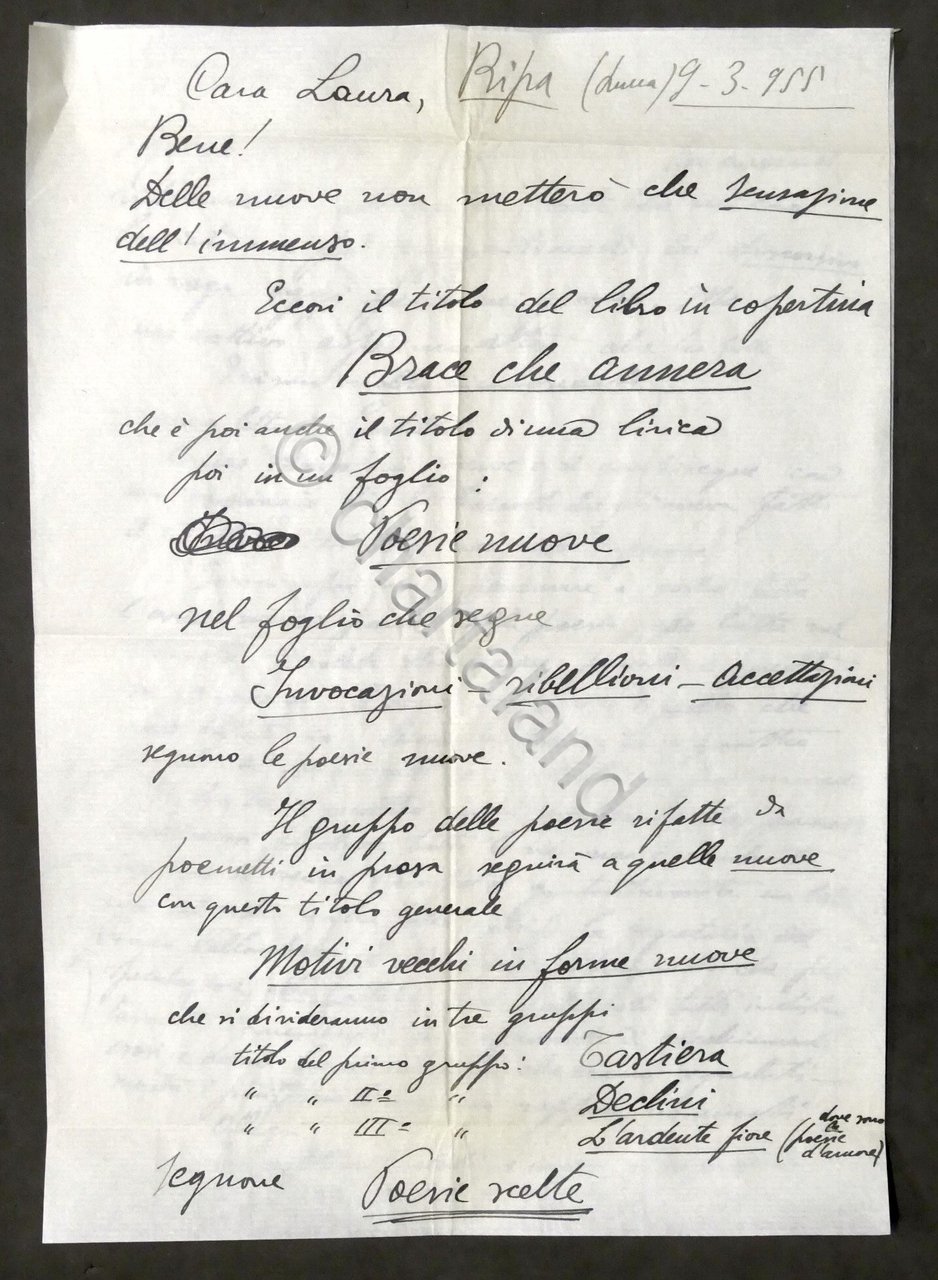 Cara Laura, Ripa (Lucca) 9-3-955
Bene!
Delle nuove non metterò che sensazione
dell'immenso.
Eccovi il titolo del libro in copertina
Brace che annera
che è poi anche il titolo di una lirica
poi in un foglio:
Poesie nuove
nel foglio che segue
Invocazioni - ribellioni - Accettazioni
seguono le poesie nuove.
Il gruppo delle poesie rifatte da
poemetti in prosa seguirà a quelle nuove
con questo titolo generale
Motivi vecchi in forme nuove
che si divideranno in tre gruppi
titolo del primo gruppo: Tastiera
" " II° " Declini
" " III° " L'ardente fiore (dove sono le poesie d'amore)
Seguono Poesie scelte
© Chartaland